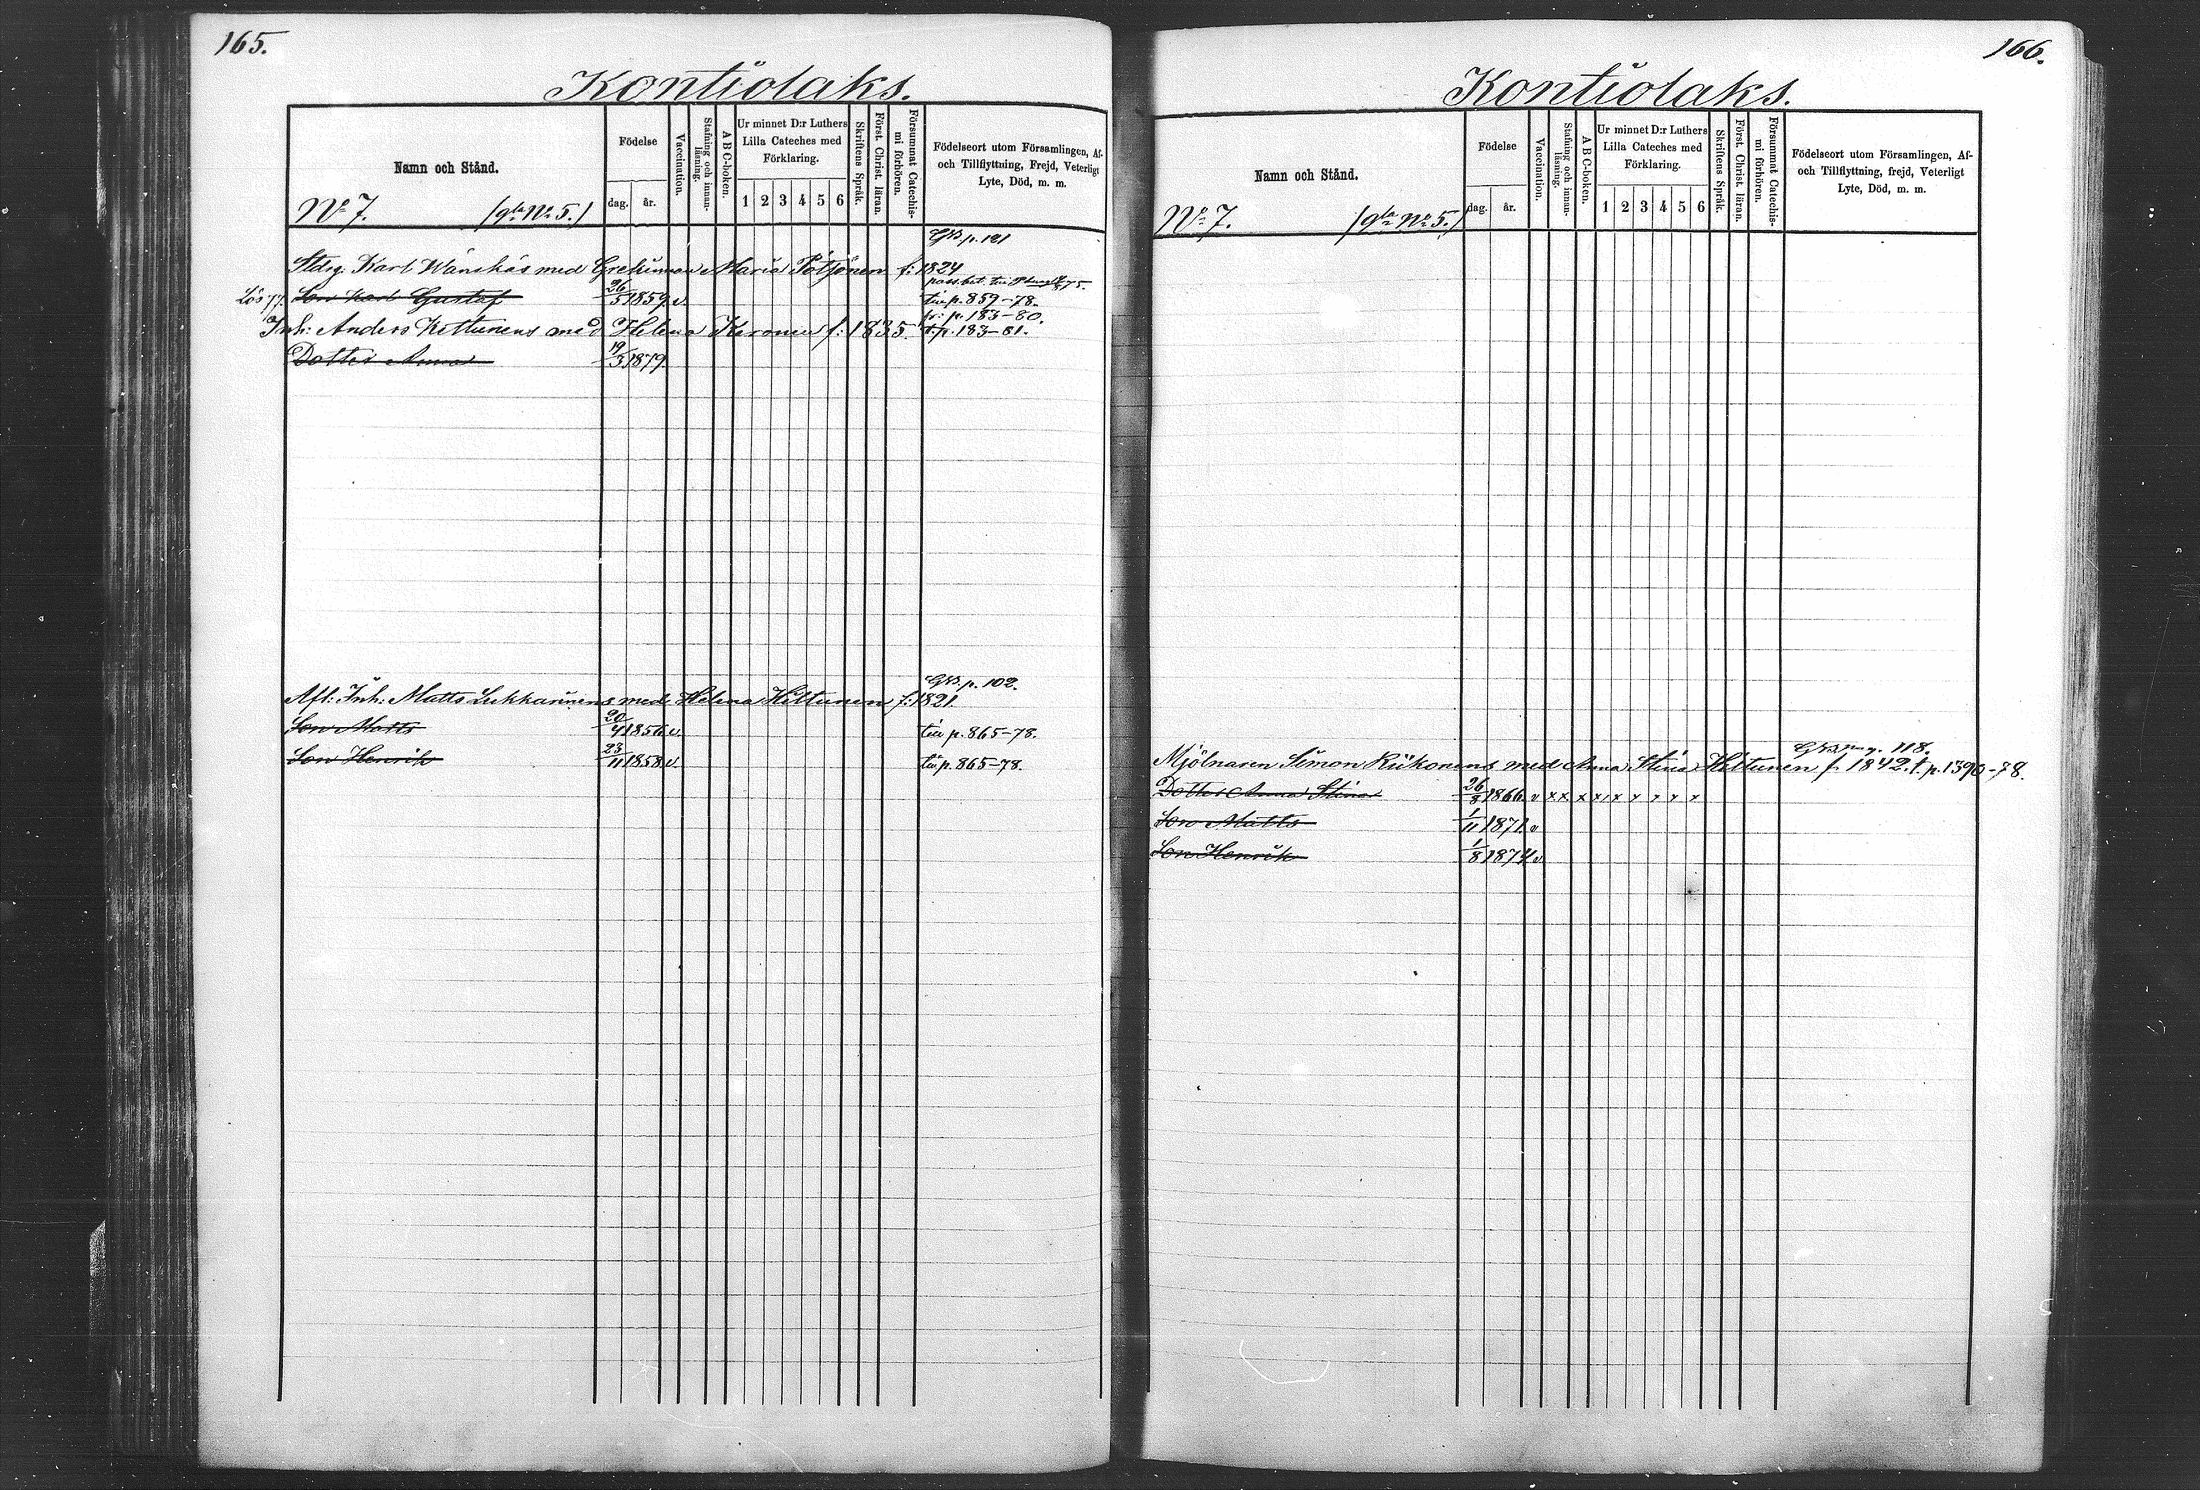 165.
Kontiolaks.
Namn och Stånd.
Födelse
dag. år.
Vaccination.
Stafning och innan-
läsning.
A B C-boken.
Ur minnet D:r Luthers
Lilla Cateches med
Förklaring.
1 2 3 4 5 6
Skriftens Språk.
Först. Christ. läran.
Försummat Catechis-
mi förhören.
Födelseort utom Församlingen, Af-
och Tillflyttning, Frejd, Veterligt
Lyte, Död, m. m.
No 7. (gla No 5.)
GB. p. 121
Karl Wänskäs med Maria f: 1824
pass. bet. 875.
Son Karl Gustaf 26/5 1859. v till p. 859-78.
fr: p. 183-80.
Inh: Anders Kettunens med Helena f: 1835. t. p. 183-81.
Dotter Anna 19/3 1879.
GB. p. 102.
Afl: Inh: Matts Lukkarinens med Helena Hiltunen f: 1821
Son Matts 20/4 1856. v till p. 865-78.
Son Henrik 23/11 1858. v till p. 865-78.
166.
Kontiolaks.
Namn och Stånd.
Födelse
dag. år.
Vaccination.
Stafning och innan-
läsning.
A B C-boken.
Ur minnet D:r Luthers
Lilla Cateches med
Förklaring.
1 2 3 4 5 6
Skriftens Språk.
Först. Christ. läran.
Försummat Catechis-
mi förhören.
Födelseort utom Församlingen, Af-
och Tillflyttning, frejd, Veterligt
Lyte, Död, m. m.
No 7. (gla No 5.)
118.
Mjölnaren Simon Riikonens med Anna Stina Hiltunen f. 1842. t. p. 1390-78.
Dotter Anna Stina 26/8 1866 v x x x x x x x x x
Son Matts 1/11 1871. v
Son Henrik 1/8 1874 v